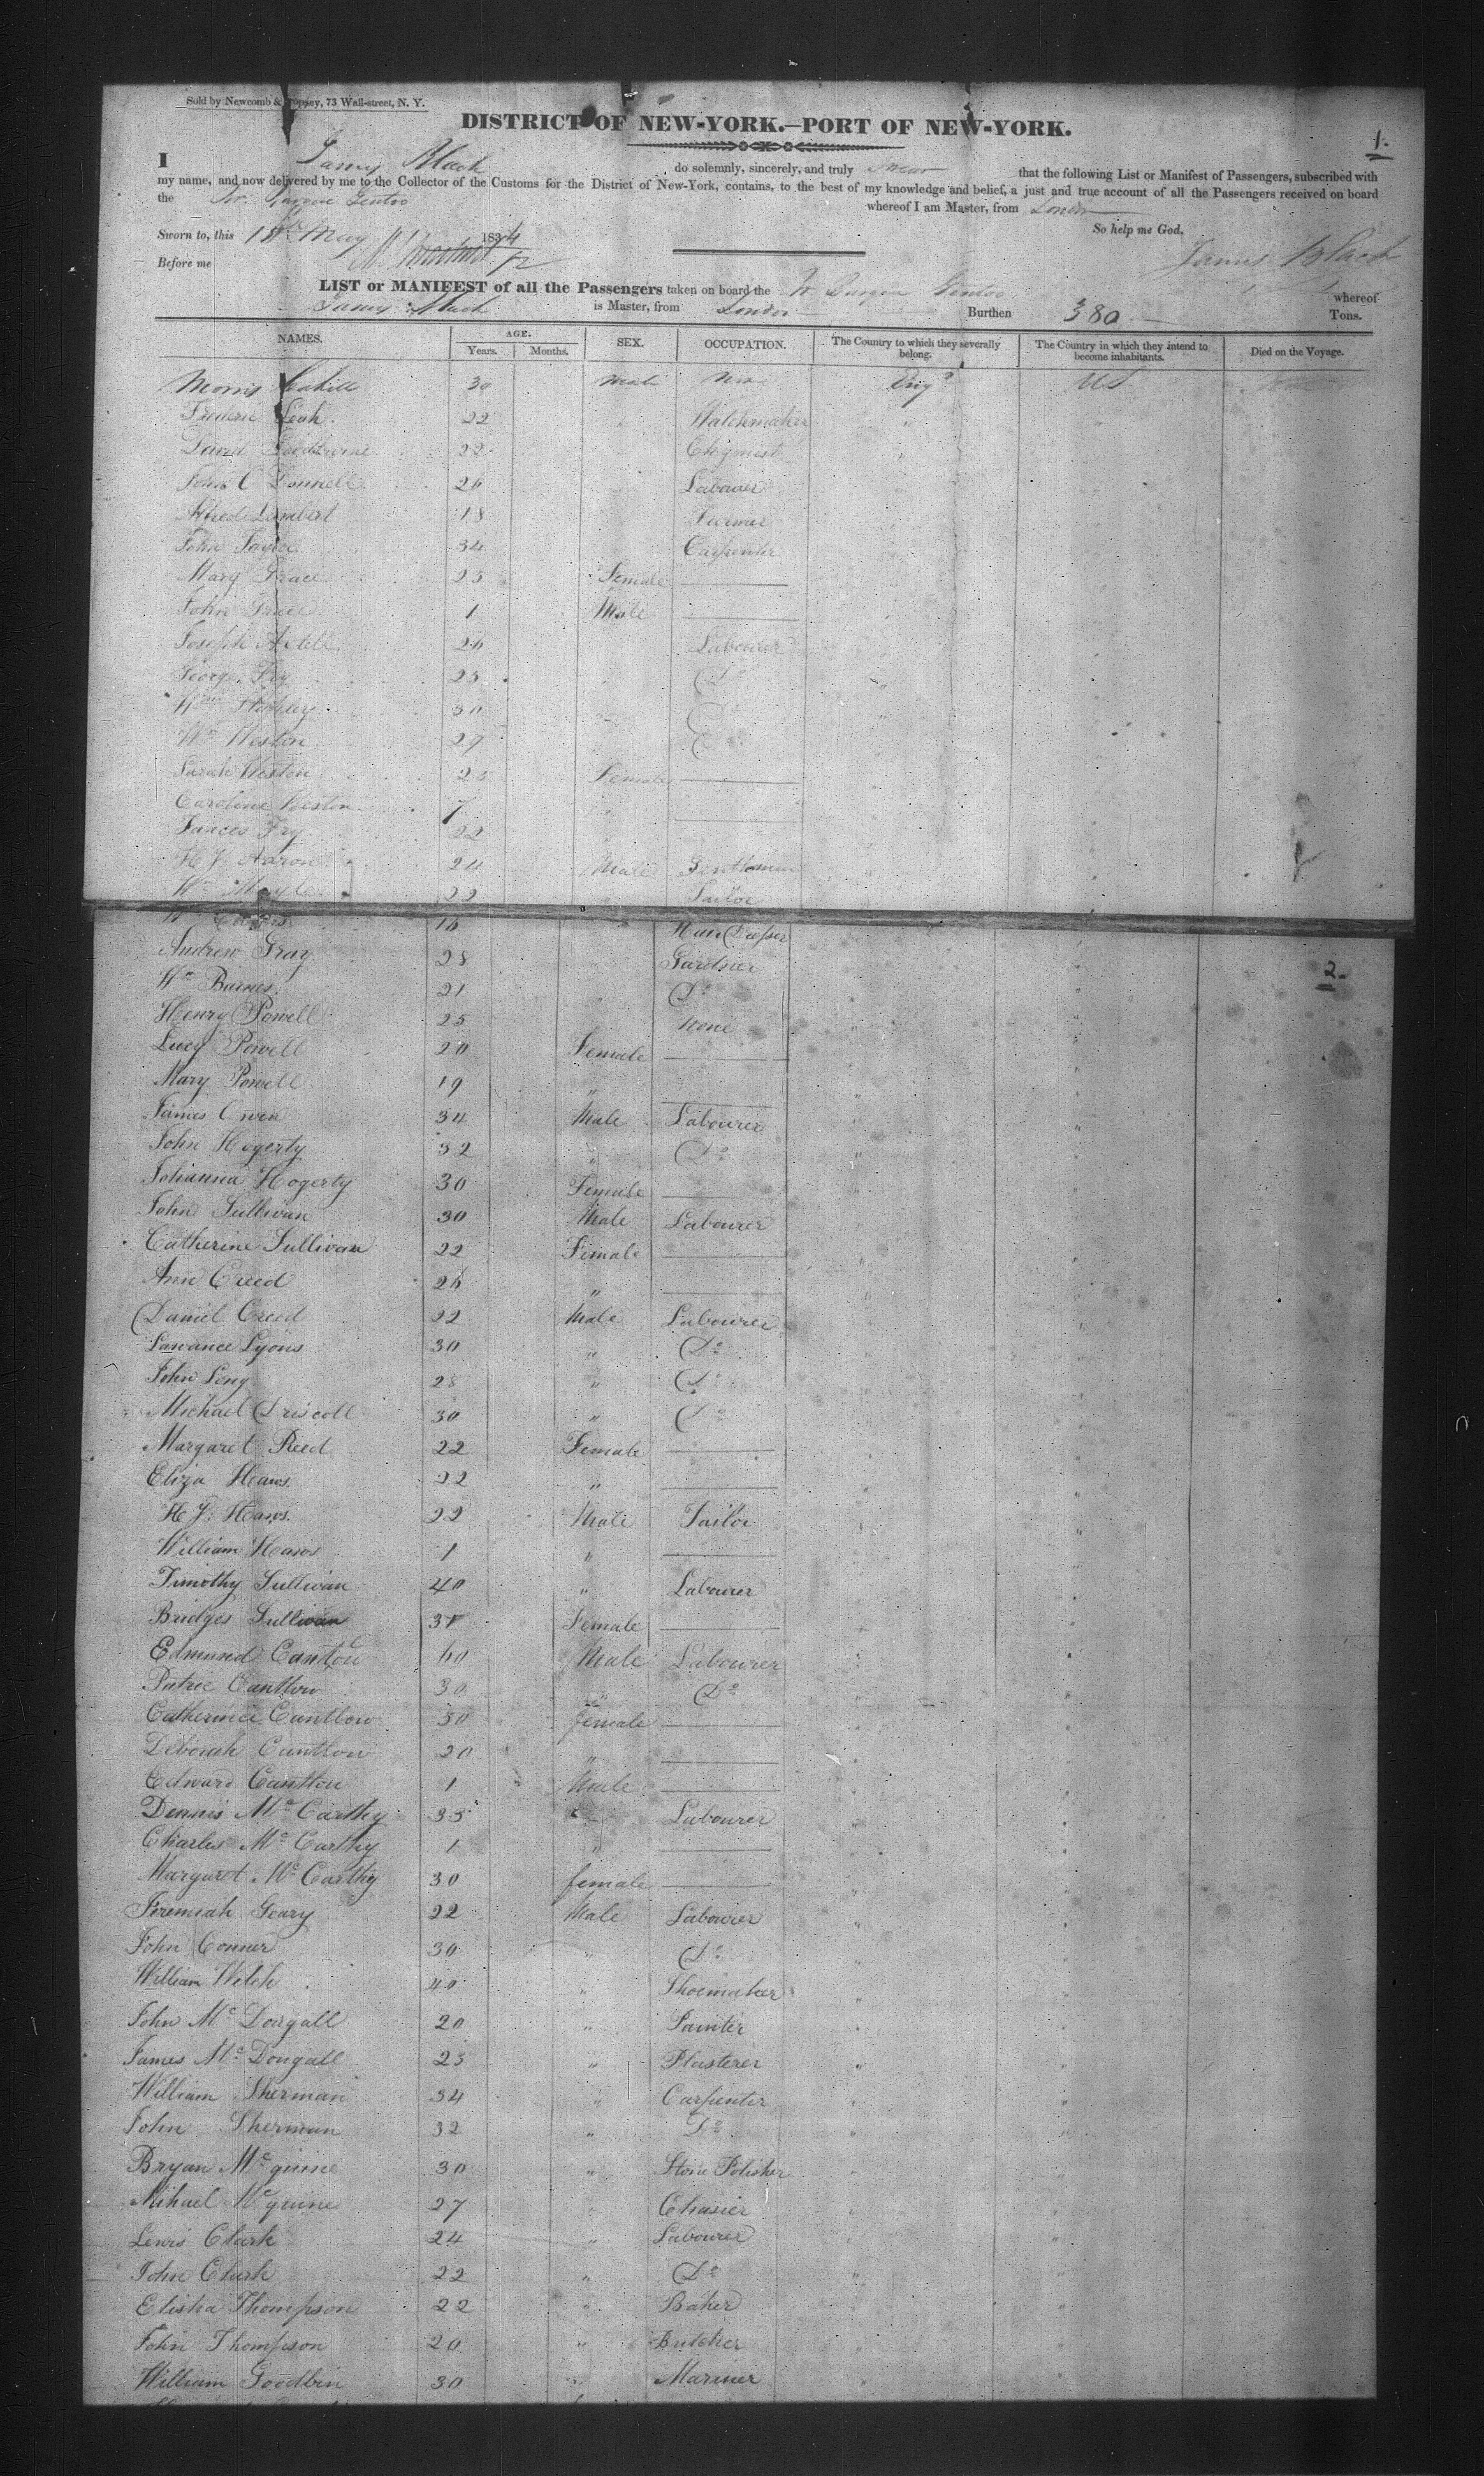 Sold by Newcomb & Cropsey, 73 Wall-street, N. Y.
DISTRICT OF NEW-YORK.—PORT OF NEW-YORK.
1.
I James Black do solemnly, sincerely, and truly swear that the following List or Manifest of Passengers, subscribed with
my name, and now delivered by me to the Collector of the Customs for the District of New-York, contains, to the best of my knowledge and belief, a just and true account of all the Passengers received on board
the Br. Barque whereof I am Master, from London
Sworn to, this May 1834 So help me God.
Before me James Black
LIST or MANIFEST of all the Passengers taken on board the Br Barque whereof
James Black is Master, from London Burthen 380 Tons.
NAMES. AGE. Years. Months. SEX. OCCUPATION. The Country to which they severally belong. The Country in which they intend to become inhabitants. Died on the Voyage.
Morris Cahill 30 Male Engd US
Frederic 22 " Watchmaker " "
David 22
John O Donnell 26 Labourer
Alfred Lambert 18 Farmer
John 34 Carpenter
Mary Grace 25 Female
John Grace 1 Male
Joseph Axtell 26 Labourer
George Fry 25 Do
Wm 30 Do
Wm Weston 29 Do
Sarah Weston 25 Female
Caroline Weston 7 "
Fances Fry 22
H J. Aaron 24 Male Gentleman
Wm Mayle 22 " Tailor
Wm 16 Hair Dresser
Andrew Gray 28 " Gardner "
2-
Wm Barnes 21 " Do "
Henry Powell 25 None " "
Lucy Powell 20 Female "
Mary Powell 19 " " "
James Owen 34 Male Labourer "
John Hogerty 32 " Do "
Johanna Hogerty 30 Female " "
John Sullivan 30 Male Labourer "
Catherine Sullivan 22 Female "
Ann Creed 26 " "
Daniel Creed 22 Male Labourer " "
Lawance Lyons 30 " Do " "
John Long 28 " Do "
Michael Driscoll 30 " Do "
Margaret Reed 22 Female " "
Eliza Haws. 22 " "
H J. Haws. 22 Male Tailor "
William Haws 1 " "
Timothy Sullivan 40 " Labourer "
Bridges Sullivan 31 Female "
Edmund 60 Male Labourer " "
Patric Cantlow 30 " Do " "
Catherine Cantlow 30 female " "
Deborah Cantlow 20 " "
Edward Cantlow 1 Male "
Dennis Mc Carthy 35 " Labourer "
Charles Mc Carthy 1 " "
Margaret Mc Carthy 30 female " "
Jeremiah Geary 22 Male Labourer " "
John Conner 30 " Do " "
William Welch 40 " Shoemaker " "
John Mc Dougall 20 " Painter " "
James Mc Dougall 23 " Plasterer " "
William Sherman 34 " Carpenter " "
John Sherman 32 " Do " "
Bryan Mc guine 30 " Stone Polisher " "
Mihael Mc guine 27 " Chasier " "
Lewis Clark 24 " Labourer " "
John Clark 22 " Do " "
Elisha Thompson 22 " Baker " "
John Thompson 20 " Butcher " "
William Goodbin 30 " Mariner " "